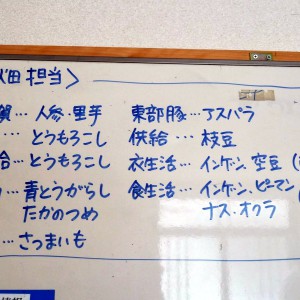 畑担当>
賀…人参・里芋
…とうもろこし
給…とうもろこし
…青とうがらし
たかのつめ
…さつまいも
東部豚…アスパラ
供給…枝豆
衣生活…インゲン、空豆(
食生活…インゲン、ピーマン(
ナス・オクラ